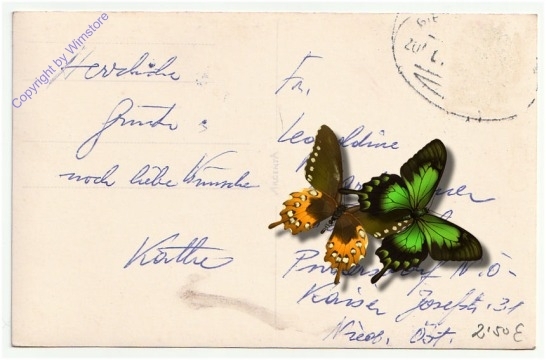 Copyright by Wimstore
Herzliche
Grüße
noch liebe Wünsche
Käthe
Fr.
Leopoldine
N.Ö-
Kaiser Josefstr. 31
Nied. Öst.
2'50 €